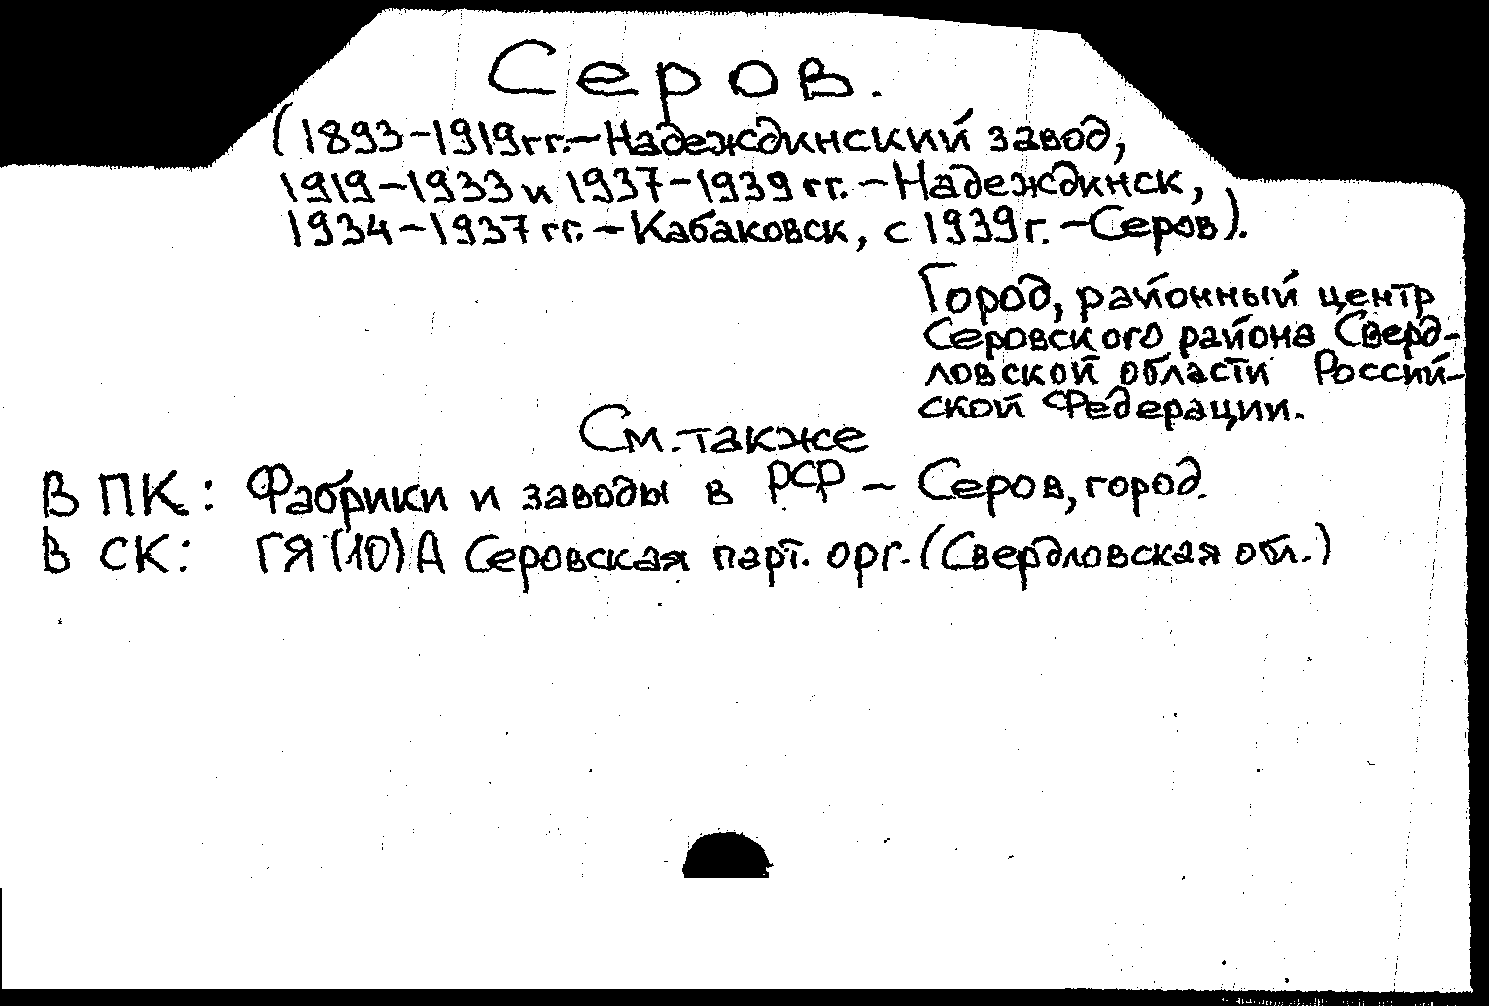 Серов.
(1893-1919гг.-Надеждинский завод,
1919-1933 и 1937-1939 гг. - Надеждинск,
1934-1937 гг. - Кабаковск, с 1939 г. - Серов).
Город, районный центр
Серовского района Сверд-
ловской области Россий-
ской Федерации.
См. также
В ПК: Фабрики и заводы в РСФСР - Серов, город.
В СК: ГЯ(10)А Серовская парт. орг. (Свердловская обл.)